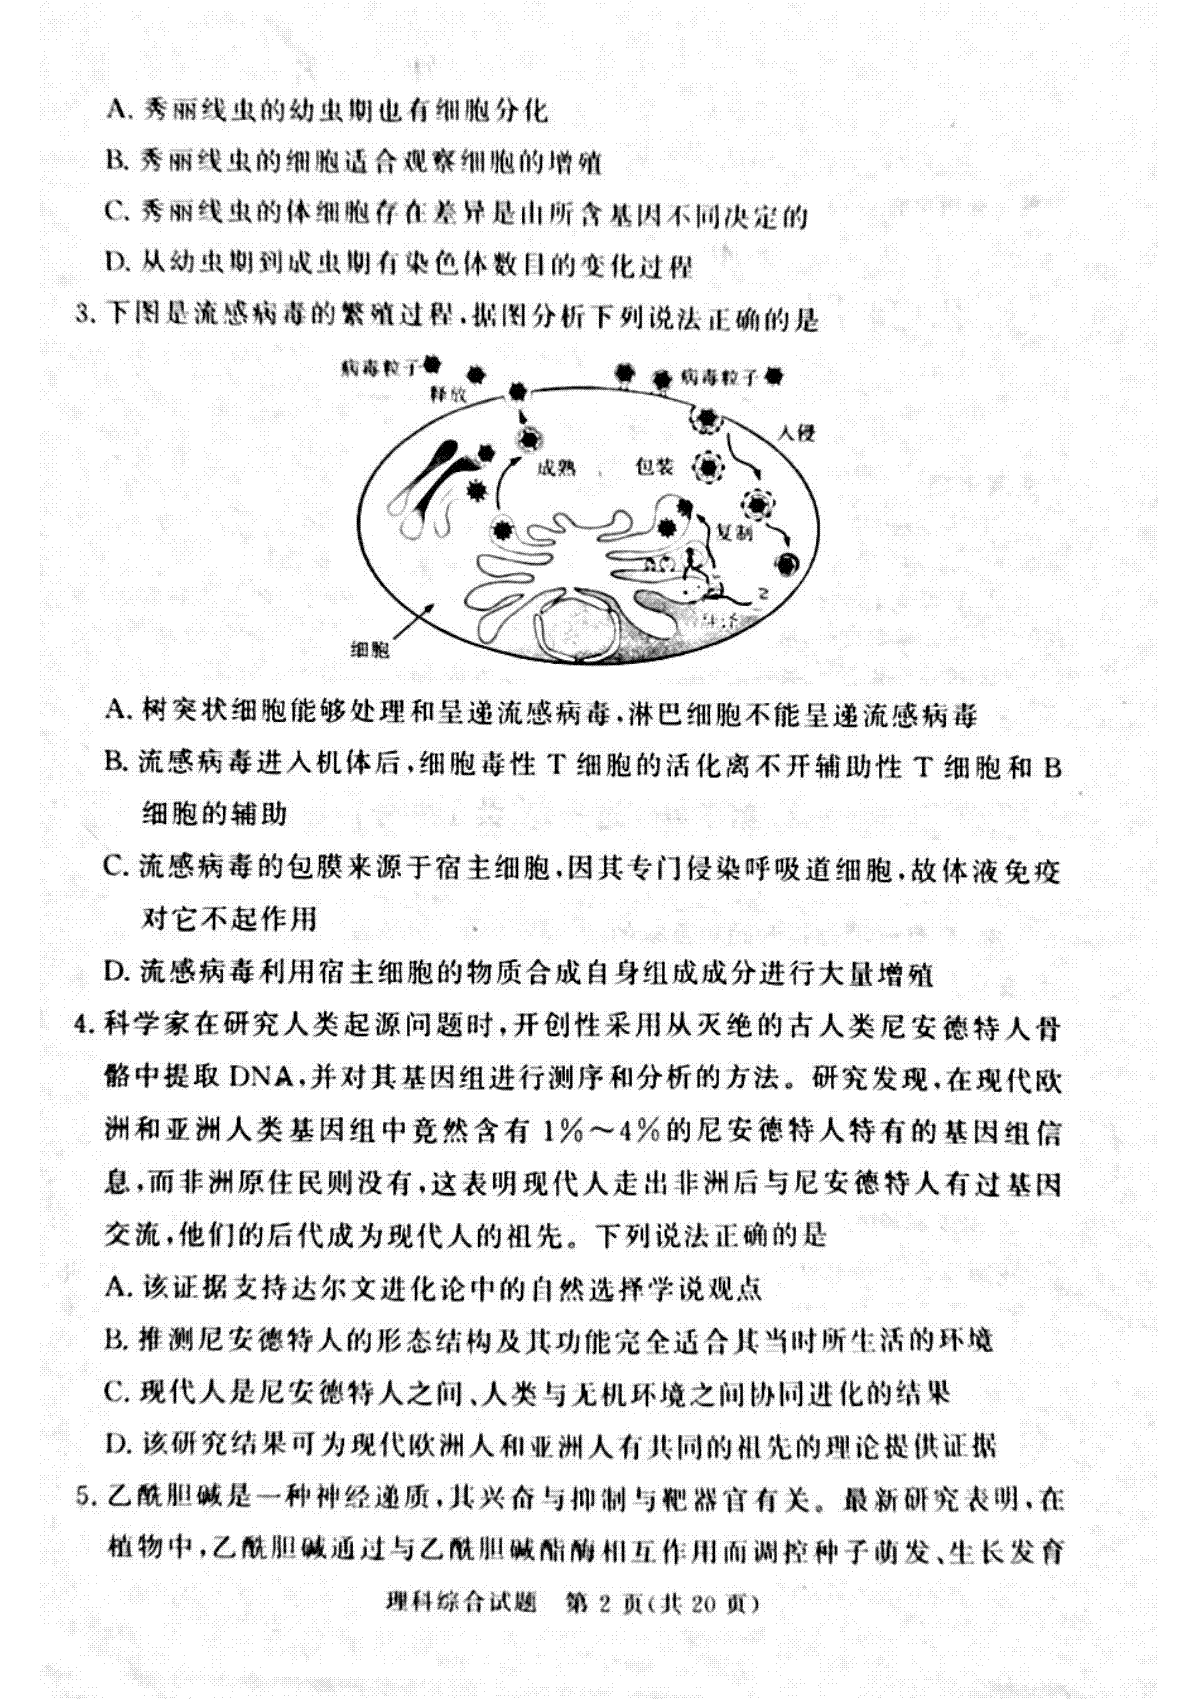 A. 秀丽线虫的幼虫期也有细胞分化
B. 秀丽线虫的细胞适合观察细胞的增殖
C. 秀丽线虫的体细胞存在差异是由所含基因不同决定的
D. 从幼虫期到成虫期有染色体数目的变化过程
3. 下图是流感病毒的繁殖过程,据图分析下列说法正确的是
病毒粒子
病毒粒子
释放
入侵
成熟
包装
复制
细胞
A. 树突状细胞能够处理和呈递流感病毒,淋巴细胞不能呈递流感病毒
B. 流感病毒进入机体后,细胞毒性 T 细胞的活化离不开辅助性 T 细胞和 B
细胞的辅助
C. 流感病毒的包膜来源于宿主细胞,因其专门侵染呼吸道细胞,故体液免疫
对它不起作用
D. 流感病毒利用宿主细胞的物质合成自身组成成分进行大量增殖
4. 科学家在研究人类起源问题时,开创性采用从灭绝的古人类尼安德特人骨
骼中提取 DNA,并对其基因组进行测序和分析的方法。研究发现,在现代欧
洲和亚洲人类基因组中竟然含有 1%～4%的尼安德特人特有的基因组信
息,而非洲原住民则没有,这表明现代人走出非洲后与尼安德特人有过基因
交流,他们的后代成为现代人的祖先。下列说法正确的是
A. 该证据支持达尔文进化论中的自然选择学说观点
B. 推测尼安德特人的形态结构及其功能完全适合其当时所生活的环境
C. 现代人是尼安德特人之间、人类与无机环境之间协同进化的结果
D. 该研究结果可为现代欧洲人和亚洲人有共同的祖先的理论提供证据
5. 乙酰胆碱是一种神经递质,其兴奋与抑制与靶器官有关。最新研究表明,在
植物中,乙酰胆碱通过与乙酰胆碱酯酶相互作用而调控种子萌发、生长发育
理科综合试题 第 2 页(共 20 页)